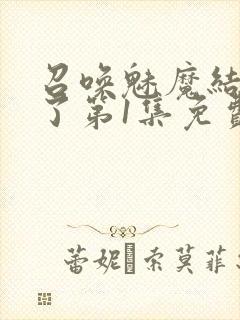 召唤魅魔结
了第1集免费
蕾妮·索莫菲